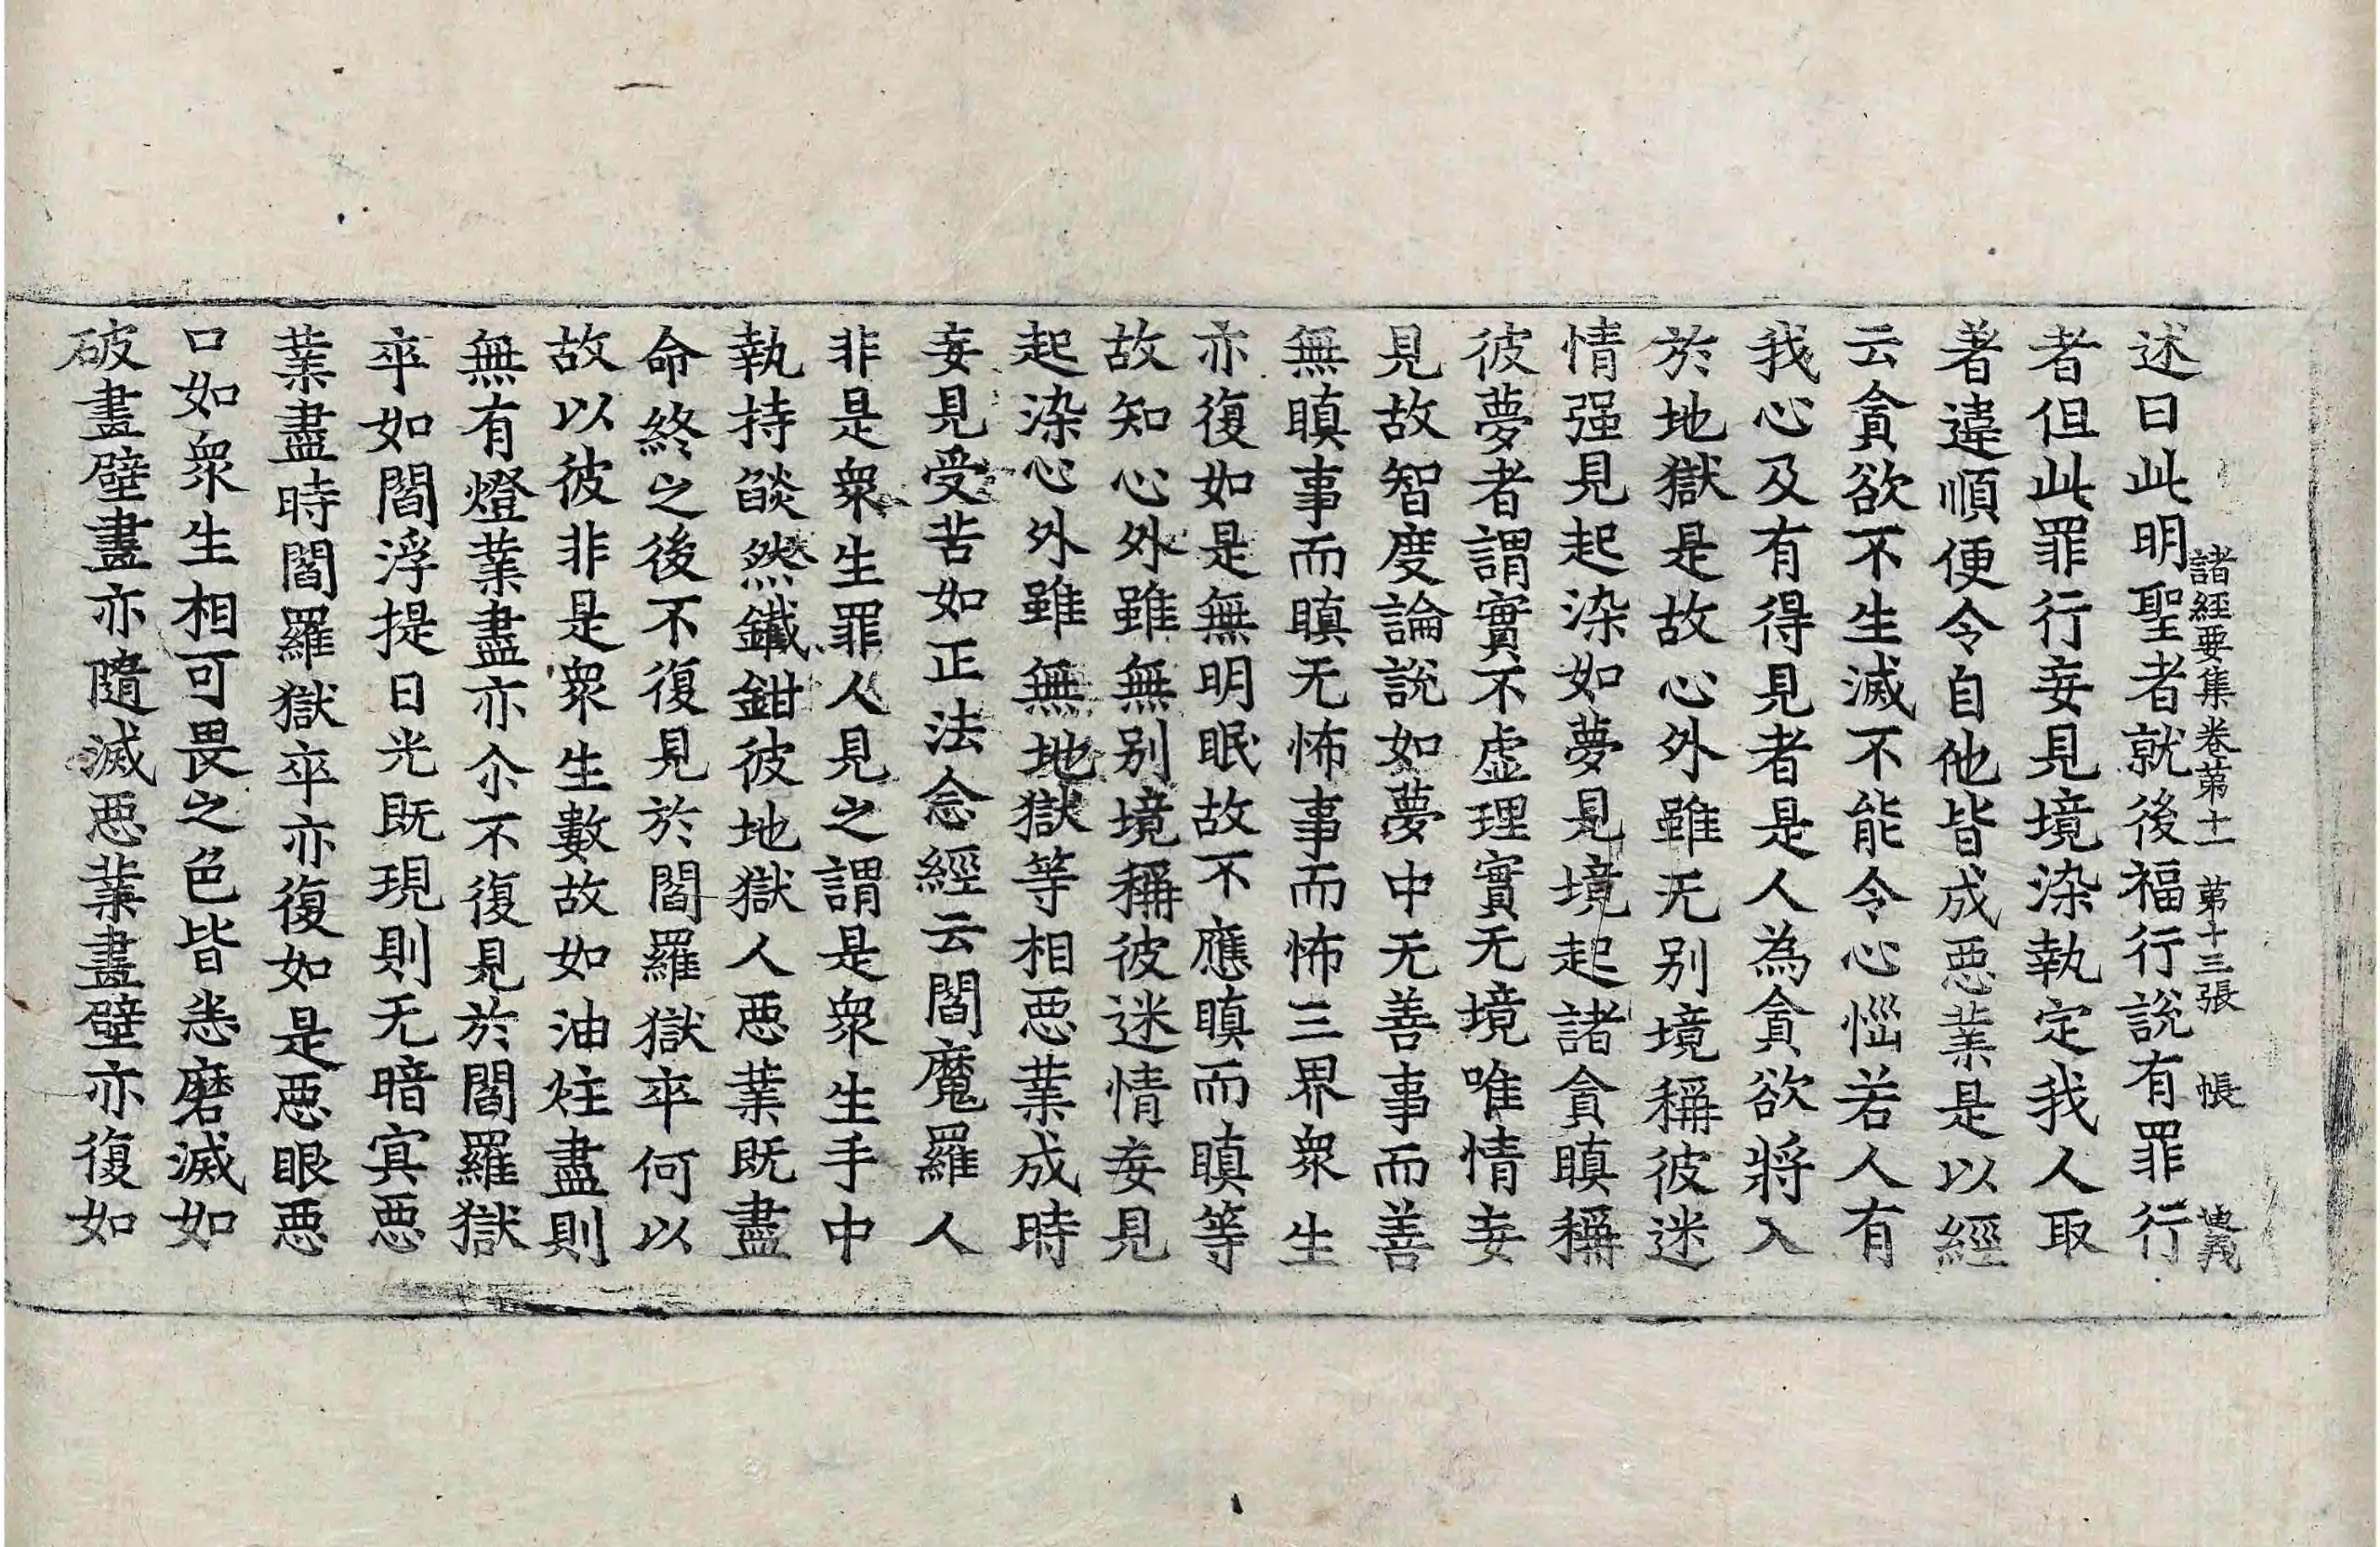 諸經要集卷第十一 第十三張 帳
述曰此明聖者就後福行說有罪行
者但此罪行妄見境染執定我人取
著違順便令自他皆成惡業是以經
云貪欲不生滅不能令心惱若人有
我心及有得見者是人為貪欲將入
於地獄是故心外雖无別境稱彼迷
情强見起染如夢見境起諸貪瞋稱
彼夢者謂實不虛理實无境唯情妄
見故智度論說如夢中无善事而善
無瞋事而瞋无怖事而怖三界衆生
亦復如是無明眠故不應瞋而瞋等
故知心外雖無別境稱彼迷情妄見
起染心外雖無地獄等相惡業成時
妄見受苦如正法念經云閻魔羅人
非是衆生罪人見之謂是衆生手中
執持燄然鐵鉗彼地獄人惡業既盡
命終之後不復見於閻羅獄卒何以
故以彼非是衆生數故如油炷盡則
無有燈業盡亦尒不復見於閻羅獄
卒如閻浮提日光既現則无暗冥惡
業盡時閻羅獄卒亦復如是惡眼惡
口如衆生相可畏之色皆悉磨滅如
破畫壁畫亦隨滅惡業畫壁亦復如